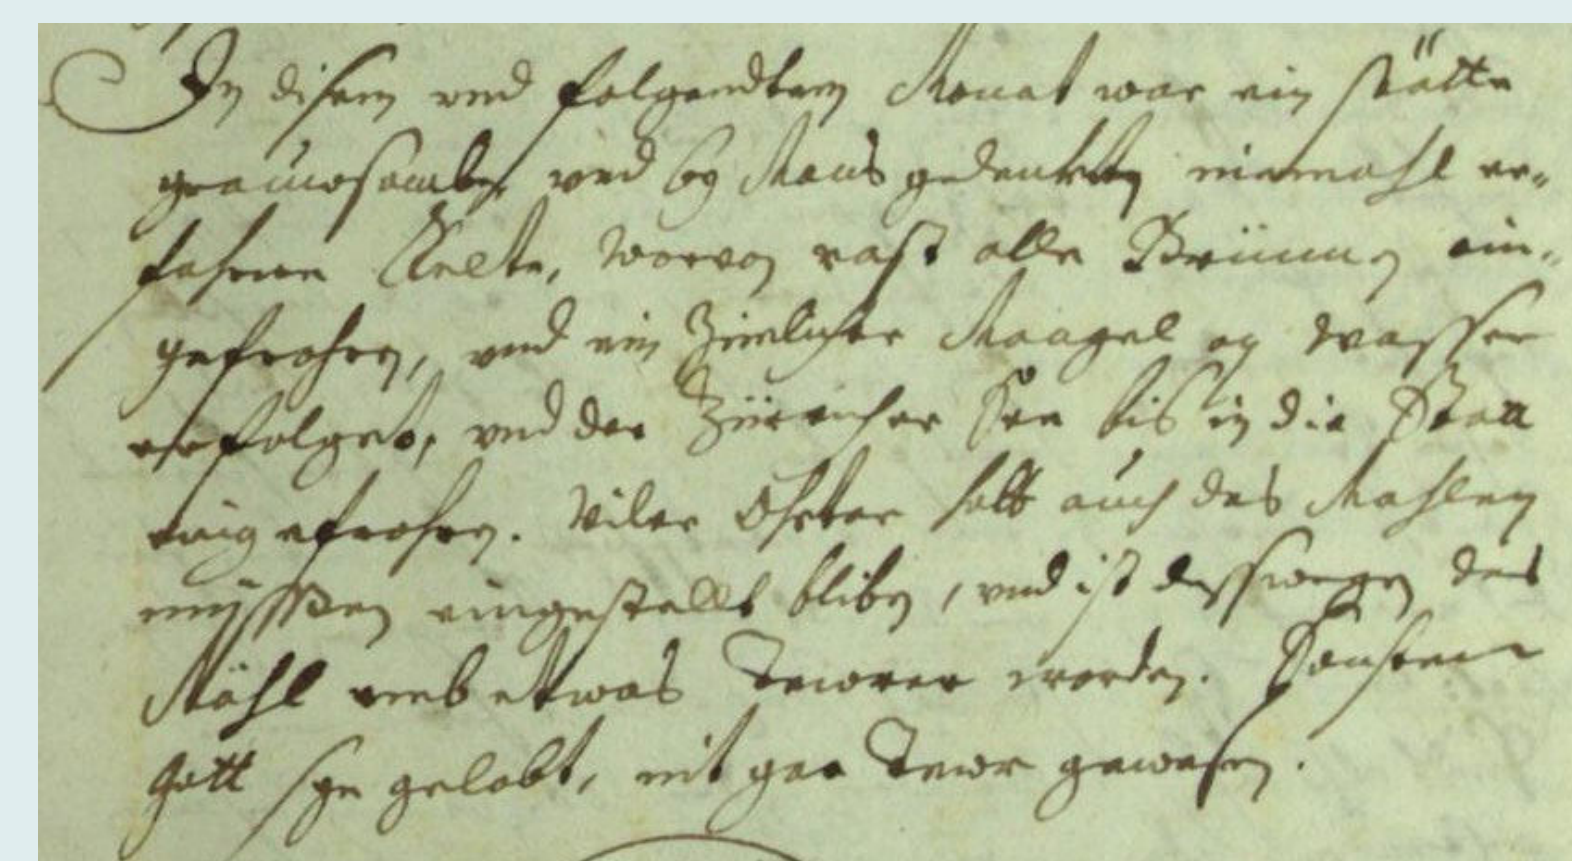 In disem vnd folgendten Monat war ein stätte
grauwsambe, vnd by Mans gedenkhen niemahl er-
fahrne Kelte, worvon vast alle Brünnen ein-
gefrohren, vnd ein Zimlicher Mangel an wasser
erfolget, vnd der Züricher See bis in die Statt
eingefrohren. Viler Ohrten hatt auch das Mahlen
müssen eingestellt bliben, vnd ist desswegen das
Mähl vmb etwas Tewrer worden. Sonsten
Gott sye gelobt, nit gar Tewr gewesen.